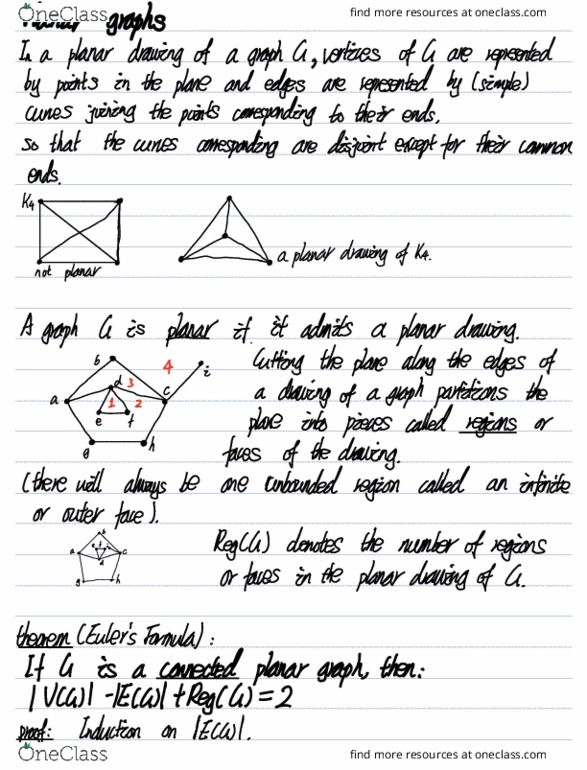 OneClass find more resources at oneclass.com
Planar graphs
In a planar drawing of a graph G, vertices of G are represented
by points in the plane and edges are represented by (simple)
curves joining the points corresponding to their ends,
so that the curves corresponding are disjoint except for their common
ends.
K4
not planar
a planar drawing of K4.
A graph G is planar if it admits a planar drawing.
b 4 i
Cutting the plane along the edges of
d 3
a c
a drawing of a graph partitions the
1 2
e f
plane into pieces called regions or
g h
faces of the drawing.
(there will always be one unbounded region called an infinite
or outer face).
b
a e f i c
d
g h
Reg(G) denotes the number of regions
or faces in the planar drawing of G.
theorem (Euler's Formula):
If G is a connected planar graph, then:
|V(G)| -|E(G)| + Reg(G) = 2
proof: Induction on |E(G)|.
OneClass find more resources at oneclass.com